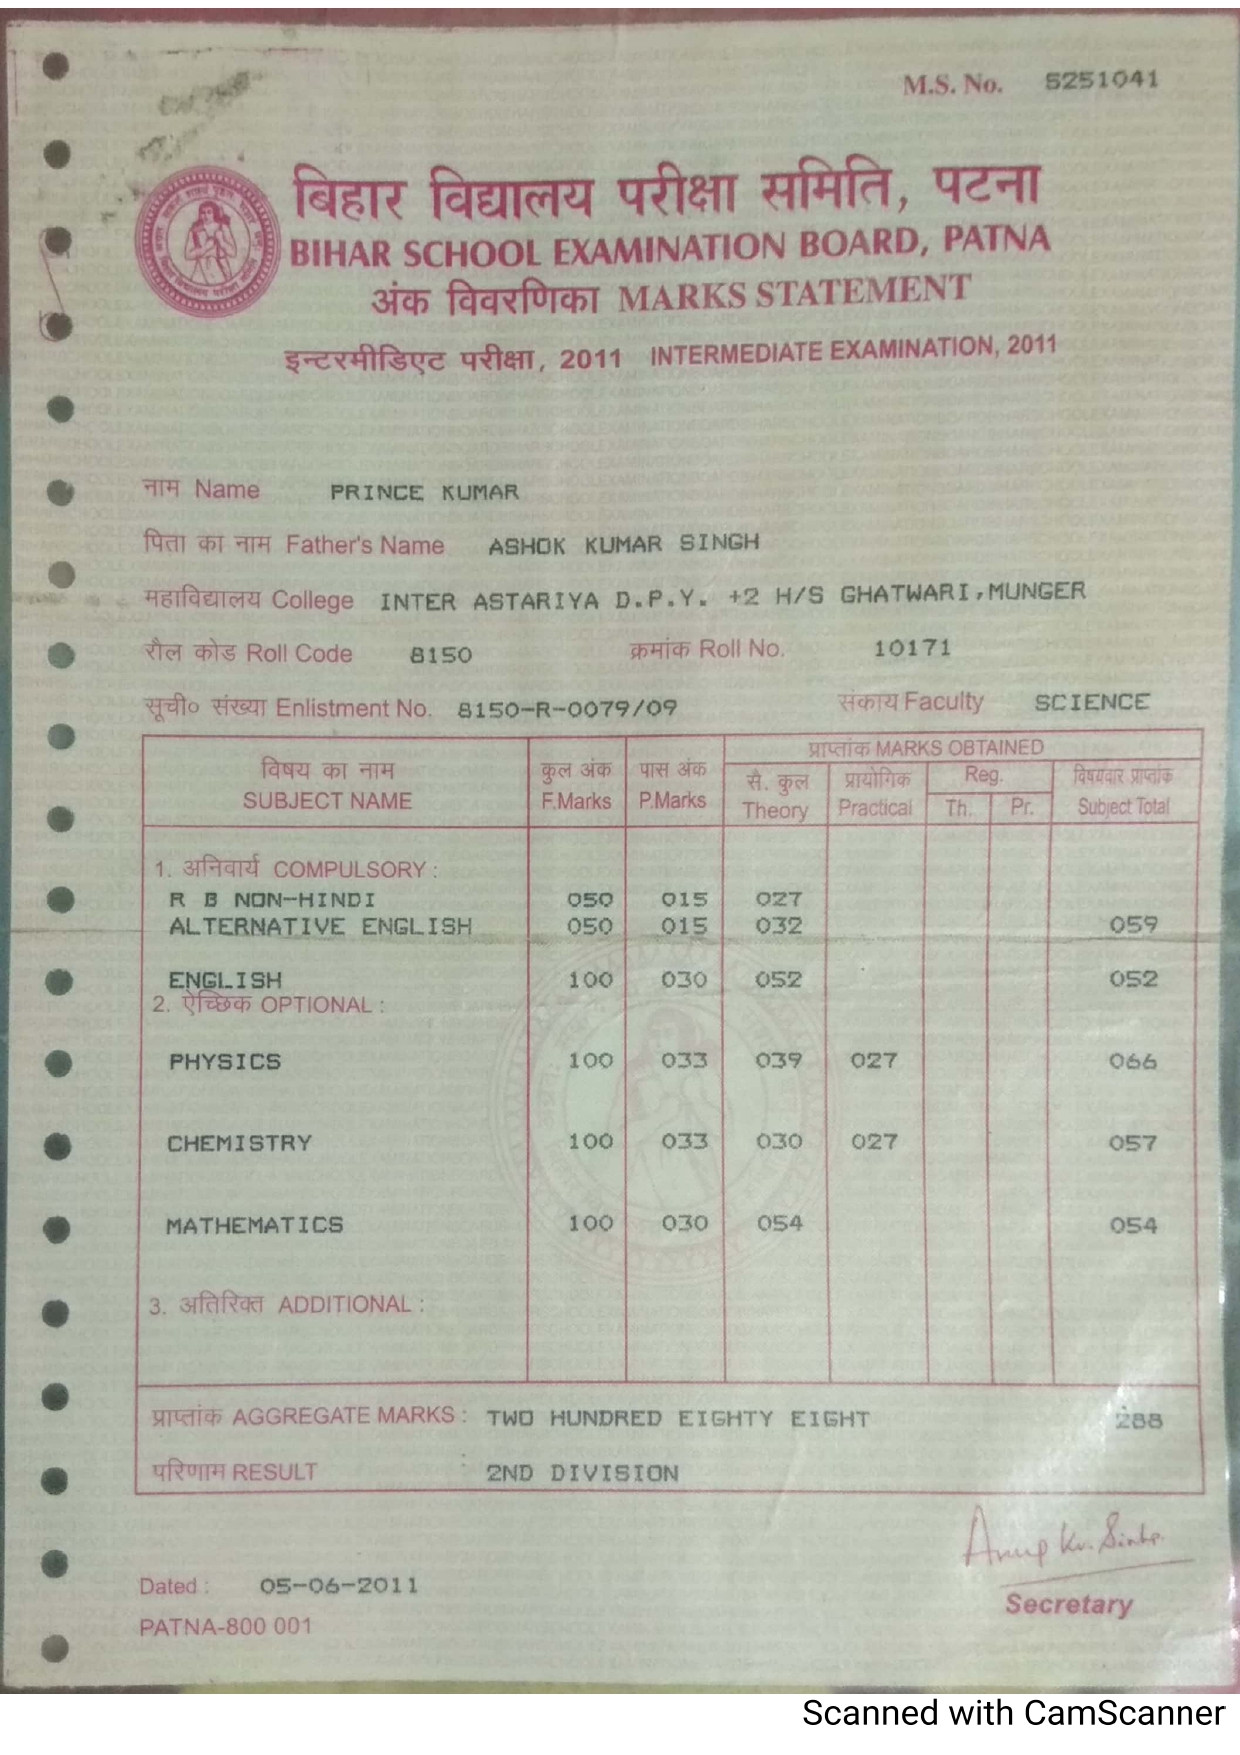 M.S. No. 5251041
बिहार विद्यालय परीक्षा समिति, पटना
BIHAR SCHOOL EXAMINATION BOARD, PATNA
अंक विवरणिका MARKS STATEMENT
इन्टरमीडिएट परीक्षा, 2011 INTERMEDIATE EXAMINATION, 2011
नाम Name PRINCE KUMAR
पिता का नाम Father's Name ASHOK KUMAR SINGH
महाविद्यालय College INTER ASTARIYA D.P.Y. +2 H/S GHATWARI,MUNGER
रौल कोड Roll Code 8150 क्रमांक Roll No. 10171
सूची० संख्या Enlistment No. 8150-R-0079/09 संकाय Faculty SCIENCE
प्राप्तांक MARKS OBTAINED
विषय का नाम कुल अंक पास अंक सै. कुल प्रायोगिक Reg. विषयवार प्राप्तांक
SUBJECT NAME F.Marks P.Marks Theory Practical Th. Pr. Subject Total
1. अनिवार्य COMPULSORY :
R B NON-HINDI 050 015 027
ALTERNATIVE ENGLISH 050 015 032 059
ENGLISH 100 030 052 052
2. ऐच्छिक OPTIONAL :
PHYSICS 100 033 039 027 066
CHEMISTRY 100 033 030 027 057
MATHEMATICS 100 030 054 054
3. अतिरिक्त ADDITIONAL :
प्राप्तांक AGGREGATE MARKS : TWO HUNDRED EIGHTY EIGHT 288
परिणाम RESULT : 2ND DIVISION
Anup Kr. Sinha
Dated : 05-06-2011
Secretary
PATNA-800 001
Scanned with CamScanner